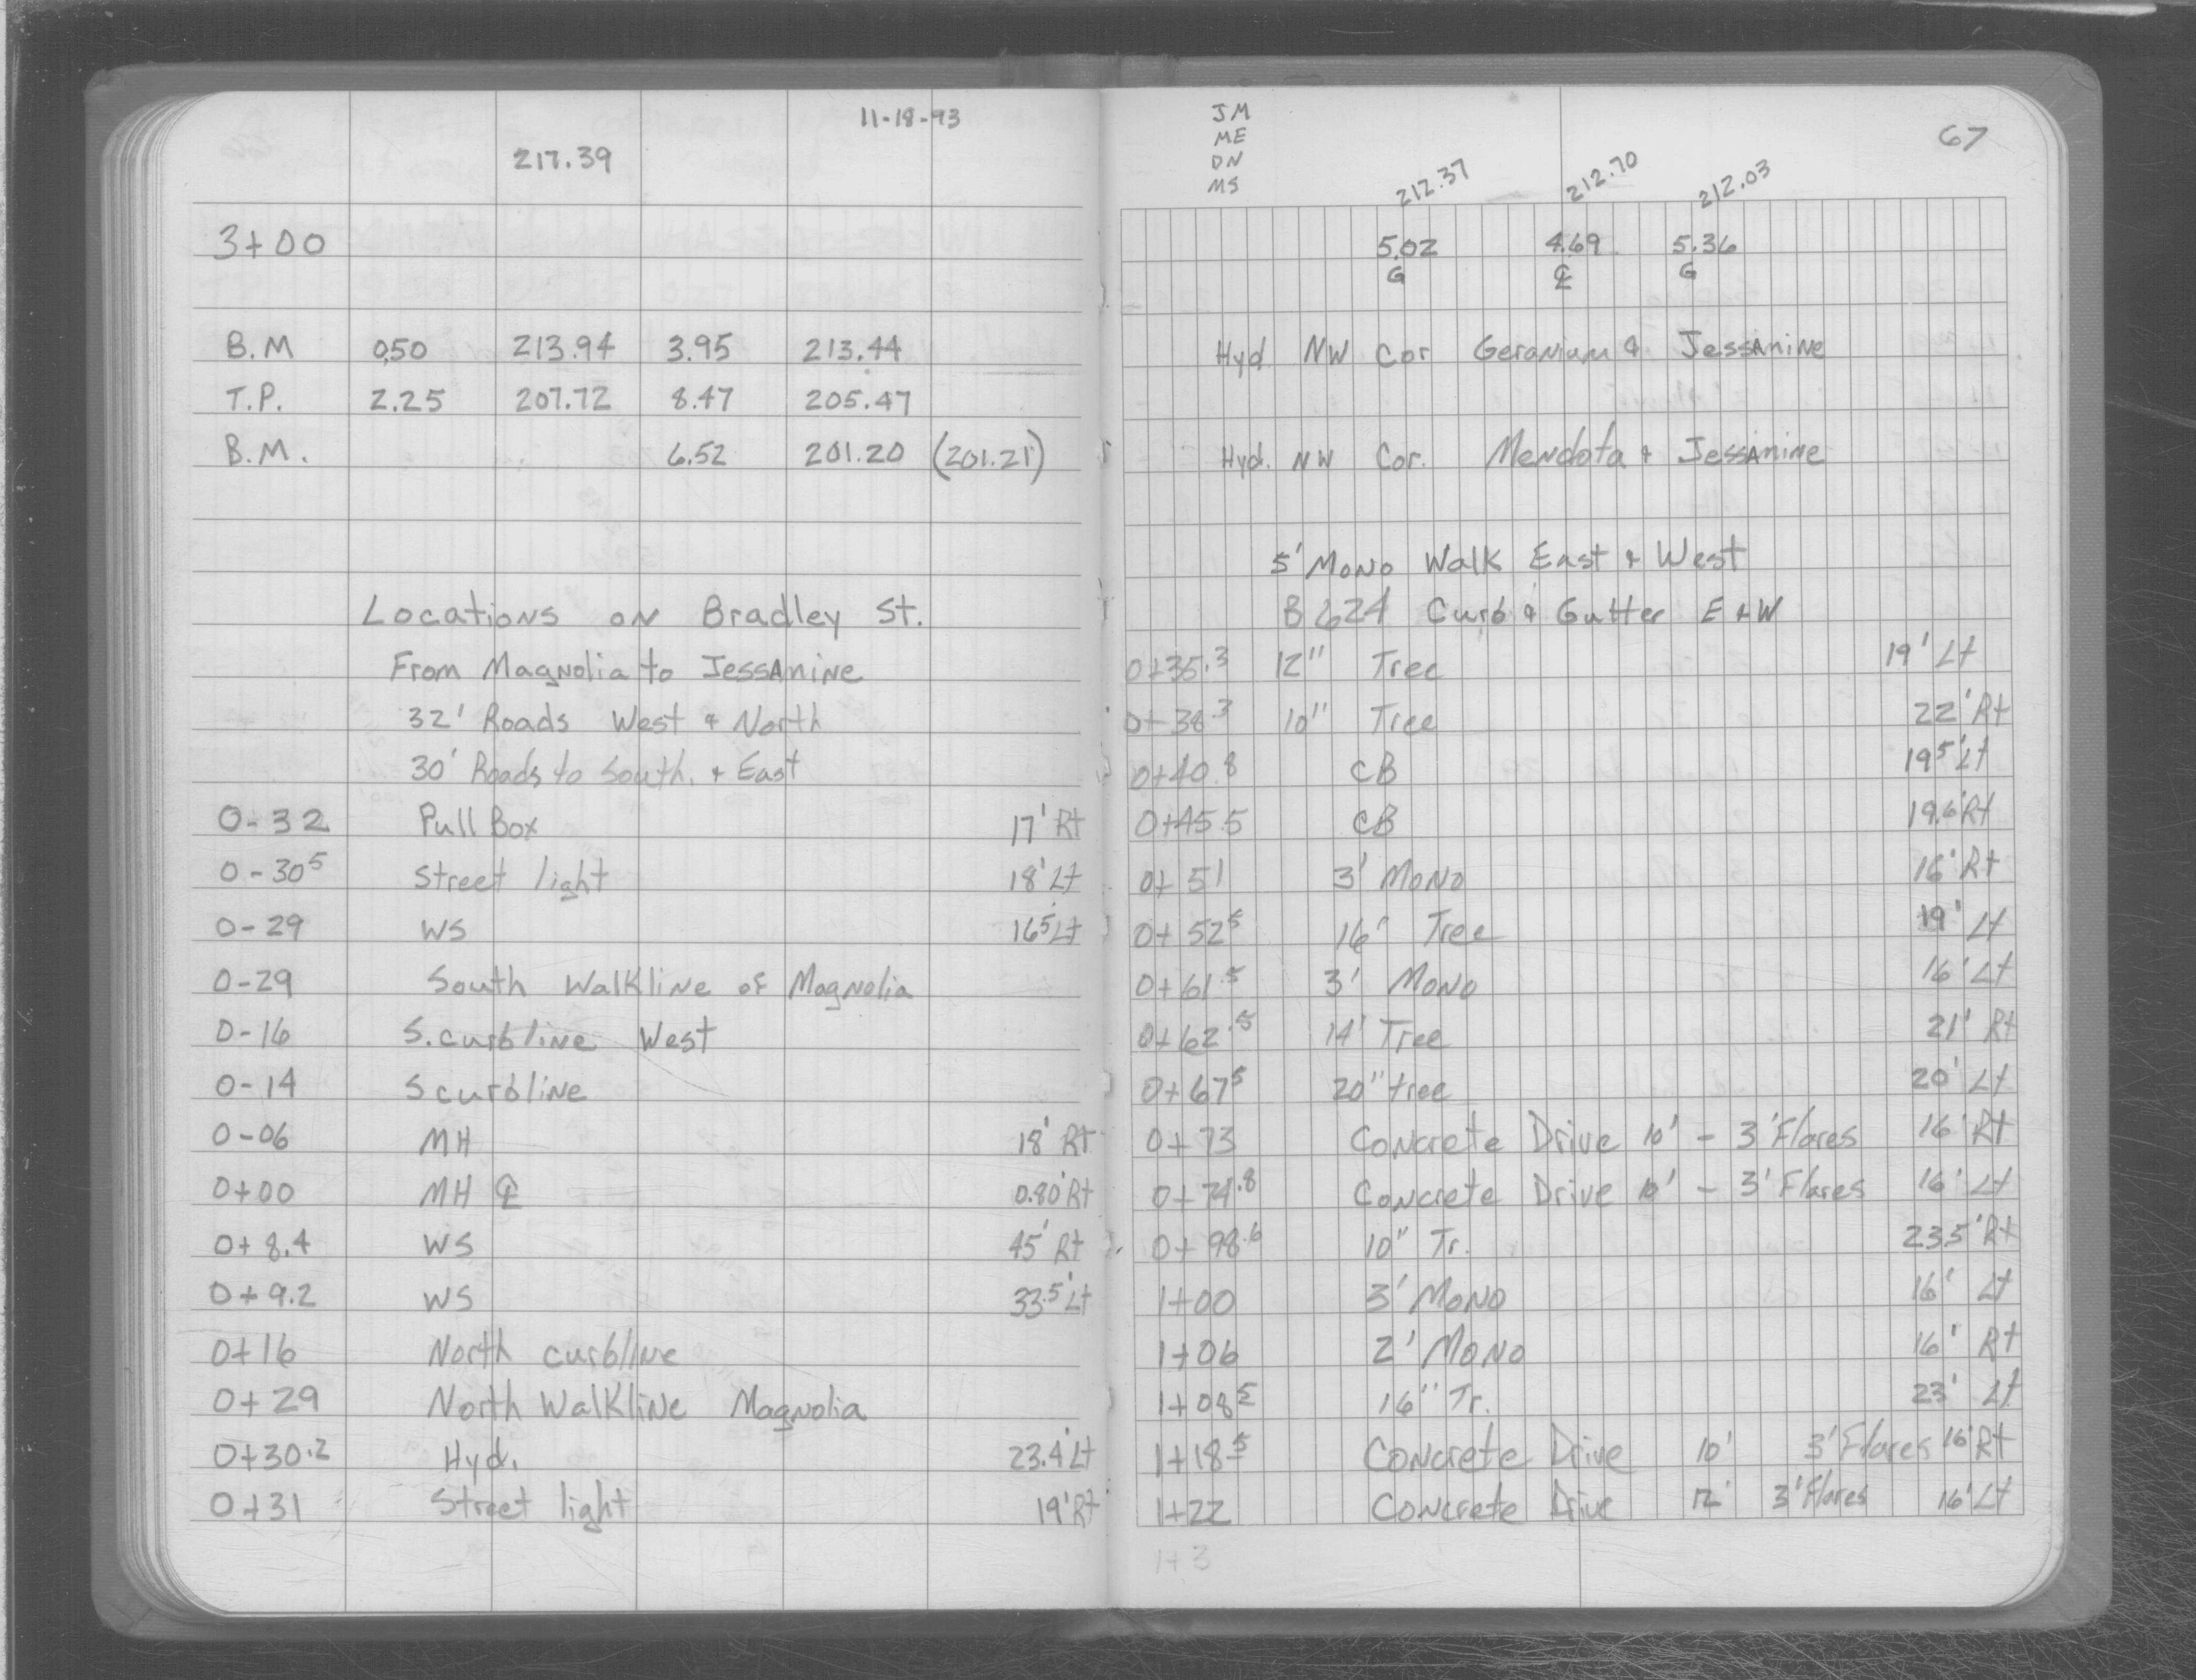 11-18-93
217.39
3+00
B.M 0.50 213.94 3.95 213.44
T.P. 2.25 207.72 8.47 205.47
B.M. 6.52 201.20 (201.21)
Locations on Bradley St.
From Magnolia to Jessamine
32' Roads West & North
30' Roads to South. & East
0-32 Pull Box 17' Rt
0-30⁵ Street light 18' Lt
0-29 WS 16⁵ Lt
0-29 South Walkline of Magnolia
0-16 S. curbline West
0-14 S curbline
0-06 MH 18' Rt
0+00 MH ℄ 0.80' Rt
0+8.4 WS 45' Rt
0+9.2 WS 33.5' Lt
0+16 North curbline
0+29 North Walkline Magnolia
0+30.2 Hyd. 23.4' Lt
0+31 Street light 19' Rt
JM
ME
DN
MS
67
212.37 212.70 212.03
5.02 4.69 5.36
G ℄ G
Hyd NW Cor Geranium & Jessamine
Hyd. NW Cor. Mendota & Jessamine
5' Mono Walk East & West
B624 Curb & Gutter E & W
0+35.3 12" Tree 19' Lt
0+38.3 10" Tree 22' Rt
0+40.8 CB 19⁵' Lt
0+45.5 CB 19.6' Rt
0+51 3' Mono 16' Rt
0+52⁵ 16" Tree 19' Lt
0+61.5 3' Mono 16' Lt
0+62.5 14' Tree 21' Rt
0+67⁵ 20" tree 20' Lt
0+73 Concrete Drive 10' - 3' Flares 16' Rt
0+74.8 Concrete Drive 10' - 3' Flares 16' Lt
0+98.6 10" Tr. 23.5' Rt
1+00 3' Mono 16' Lt
1+06 2' Mono 16' Rt
1+08⁵ 16" Tr. 23' Lt
1+18⁵ Concrete Drive 10' 3' Flares 16' Rt
1+22 Concrete Drive 12' 3' Flares 16' Lt
1+3